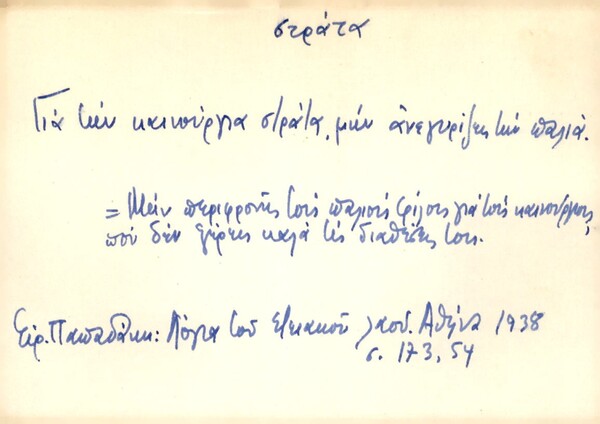 στράτα
Γιὰ τὴν καινούργια στράτα, μὴν ἀνεγυρίζεις τὴν παλιά.
= Μὴν περιφρονῆς τοὺς παλιοὺς φίλους γιὰ τοὺς καινούργιους,
ποὺ δὲν ξέρεις καλὰ τὶς διαθέσεις τους.
Εἰρ. Παπαδάκη: Λόγια τοῦ στειακοῦ λαοῦ. Ἀθήνα 1938
σ. 173, 54